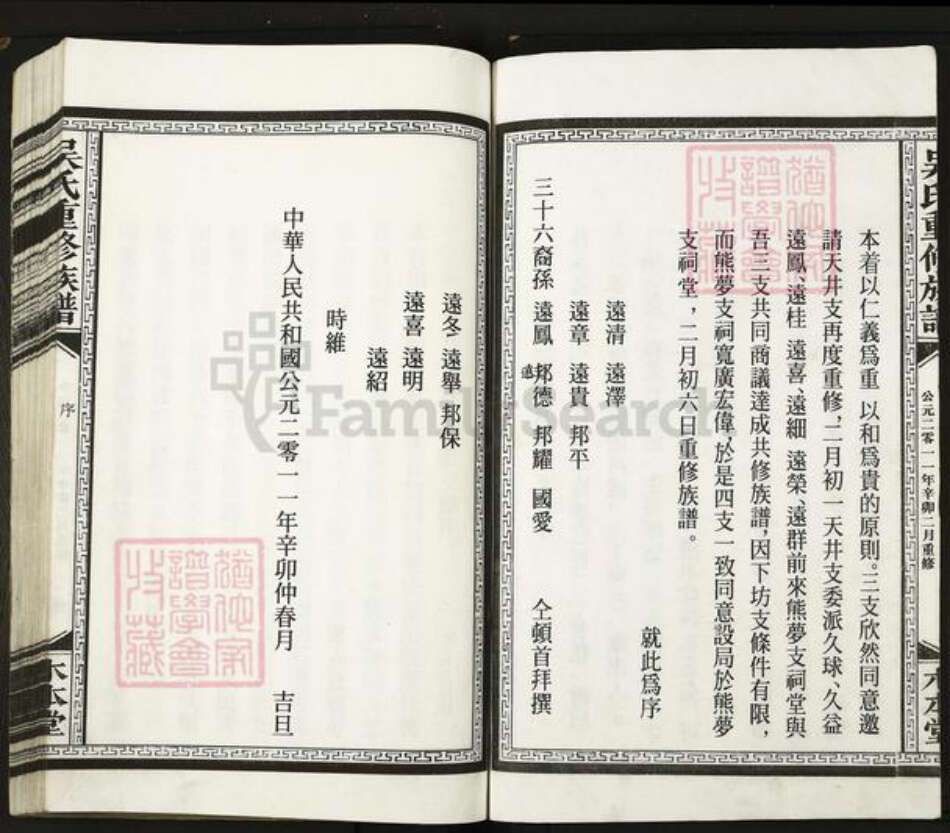 吳氏重修族譜
公元二零一一年辛卯二月重修
木本堂
本着以仁義爲重 以和爲貴的原則。三支欣然同意邀
請天井支再度重修,二月初一天井支委派久球、久益
遠鳳、遠桂 遠喜、遠細 遠榮、遠群前來熊夢支祠堂與
吾三支共同商議達成共修族譜,因下坊支條件有限,
而熊夢支祠寬廣宏偉,於是四支一致同意設局於熊夢
支祠堂,二月初六日重修族譜。
就此爲序
遠清 遠澤
遠章 遠貴 邦平
三十六裔孫 遠鳳 邦德 邦耀 國愛 仝頓首拜撰
遠冬 遠舉 邦保
遠喜 遠明
遠紹
時維
中華人民共和國公元二零一一年辛卯仲春月 吉旦
吳氏重修族譜
序
木本堂
FamilySearch